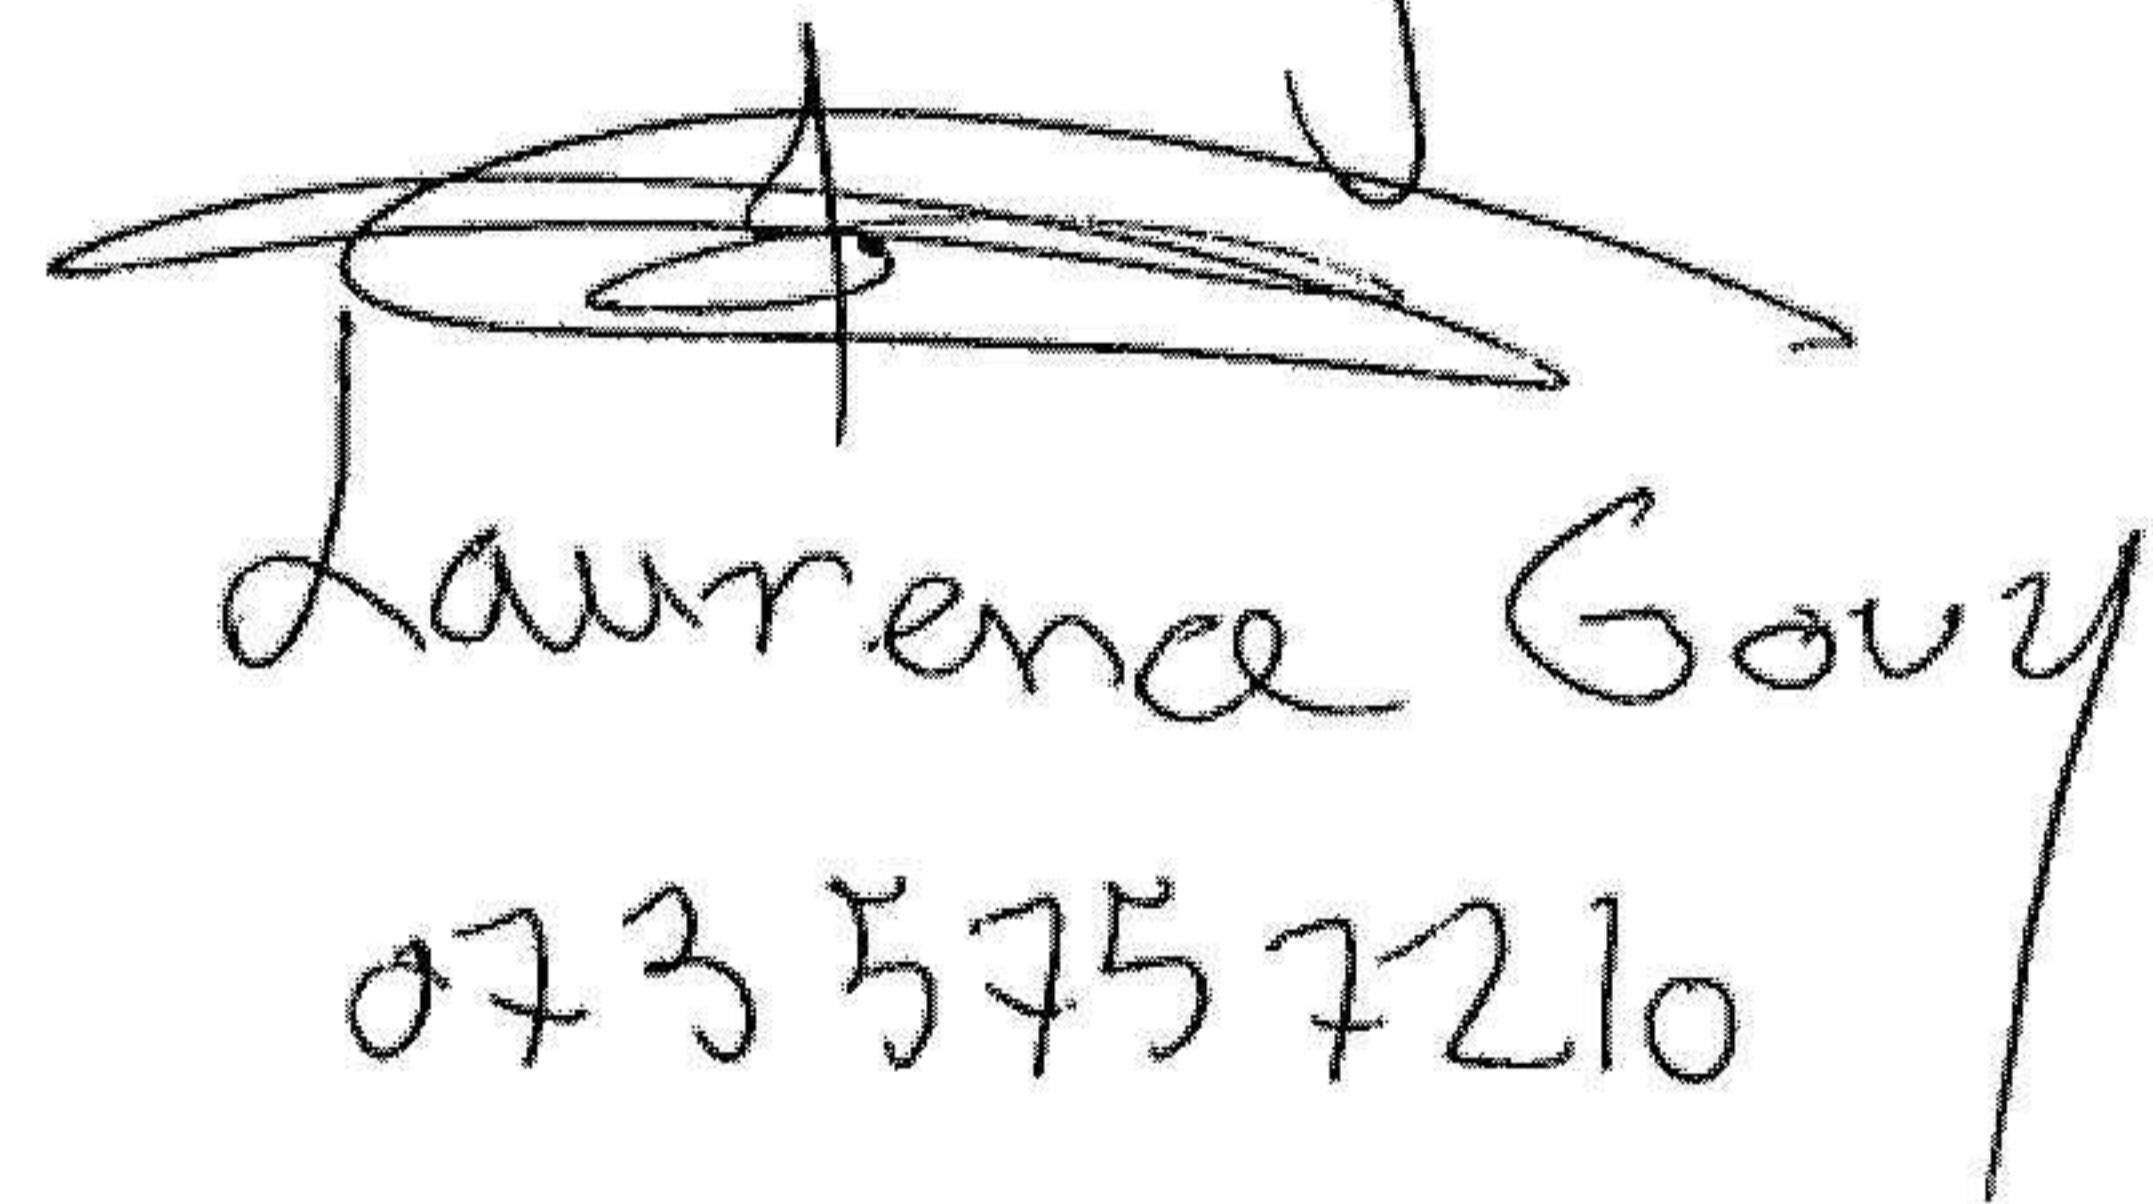 Laurence Gouy
073 575 7210